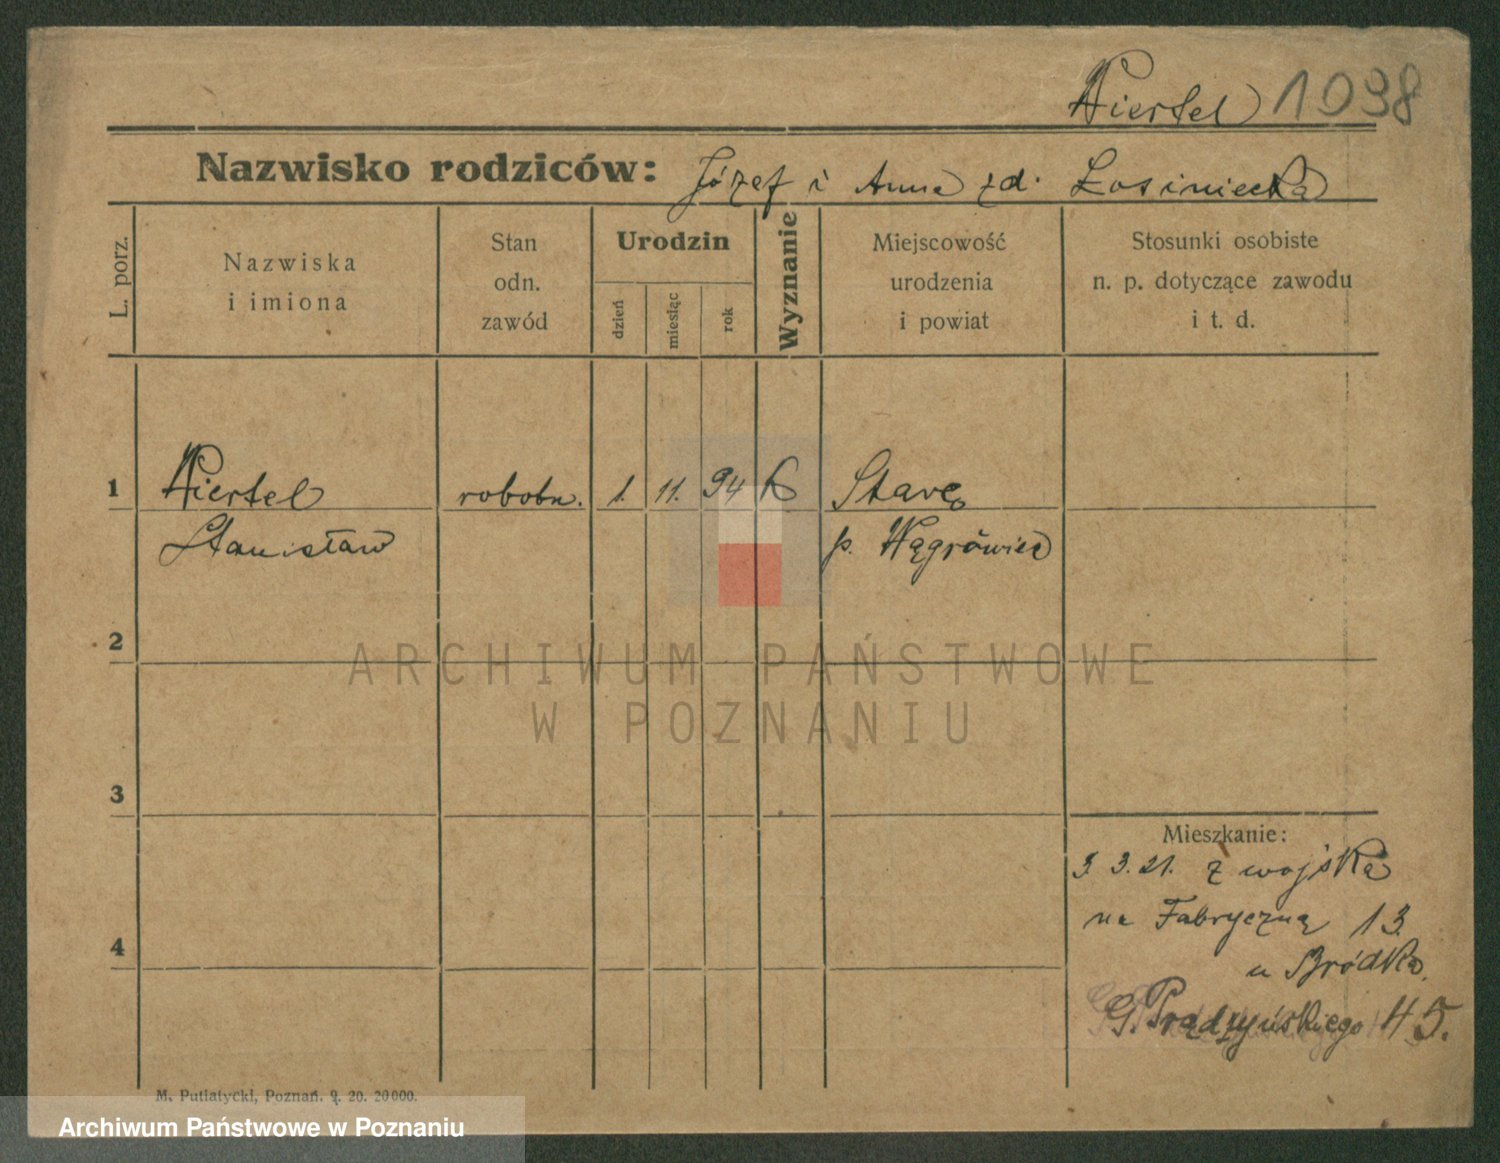 Wiertel 1098
Nazwisko rodziców: Józef i Anna zd. Łosiniecka
L. porz.
Nazwiska
i imiona
Stan
odn.
zawód
Urodzin
dzień
miesiąc
rok
Wyznanie
Miejscowość
urodzenia
i powiat
Stosunki osobiste
n. p. dotyczące zawodu
i t. d.
1 Wiertel robotn. 1. 11. 94 k Starę
Stanisław p. Wągrówiec
2
3
4
Mieszkanie:
3. 3. 21. z wojska
na Fabryczną 13.
u Bródka.
G. Prądzyńskiego 45.
M. Putiatycki, Poznań. 9. 20. 20000.
ARCHIWUM PAŃSTWOWE
W POZNANIU
Archiwum Państwowe w Poznaniu